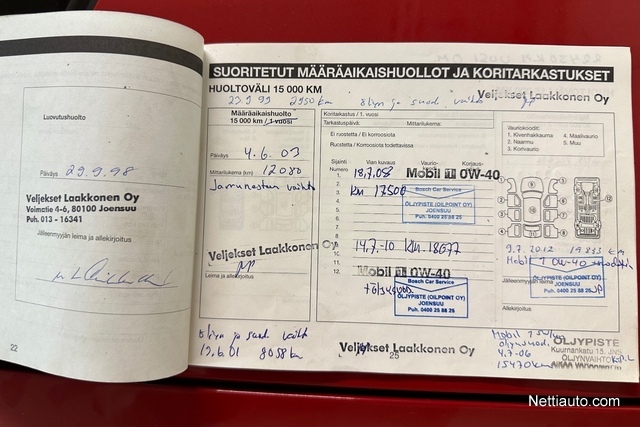 Luovutushuolto
Päiväys 29.9.98
Veljekset Laakkonen Oy
Voimatie 4-6, 80100 Joensuu
Puh. 013 - 16341
Jälleenmyyjän leima ja allekirjoitus
22
SUORITETUT MÄÄRÄAIKAISHUOLLOT JA KORITARKASTUKSET
HUOLTOVÄLI 15 000 KM
23.9.99 2950 km öljyn ja suod. vaihto
Veljekset Laakkonen Oy
Määräaikaishuolto
15 000 km / 1 vuosi
Päiväys 4.6.03
Mittarilukema (km) 12080
Jarrunesteen vaihto
Veljekset Laakkonen Oy
Leima ja allekirjoitus
öljyn ja suod. vaihto
13.6.01 8058 km
Koritarkastus / 1. vuosi
Tarkastuspäiv. Mittarilukema:
Ei ruostetta / Ei korroosiota
Ruostetta / Korroosiota todettavissa
Sijainti Vian kuvaus
Numero
Mobil 1 0W-40
18.7.08
km 17500
Bosch Car Service
ÖLJYPISTE (OILPOINT OY)
JOENSUU
Puh. 0400 25 88 25
14.7.-10 km. 18677
Mobil 1 0W-40
+ öljysuod.
Bosch Car Service
ÖLJYPISTE (OILPOINT OY)
JOENSUU
Puh. 0400 25 88 25
Vauriokoodit:
1. Kivenhakkauma 4. Maalivaurio
2. Naarmu 5. Muu
3. Korivaurio
9.7.2012 19233 km
Mobil 1 0W-40 + suodatin
Jälleenmyyjän
ÖLJYPISTE (OILPOINT OY)
JOENSUU
Puh. 0400 25 88 25
Allekirjoitus
Veljekset Laakkonen Oy
25
Mobil 1
öljynsuod.
4.7-06
15470 km
ÖLJYPISTE
Kuurnankatu 15, JNS
ÖLJYNVAIHTO
Nettiauto.com